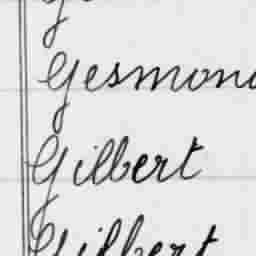 Gesmond
Gilbert
Gilbert